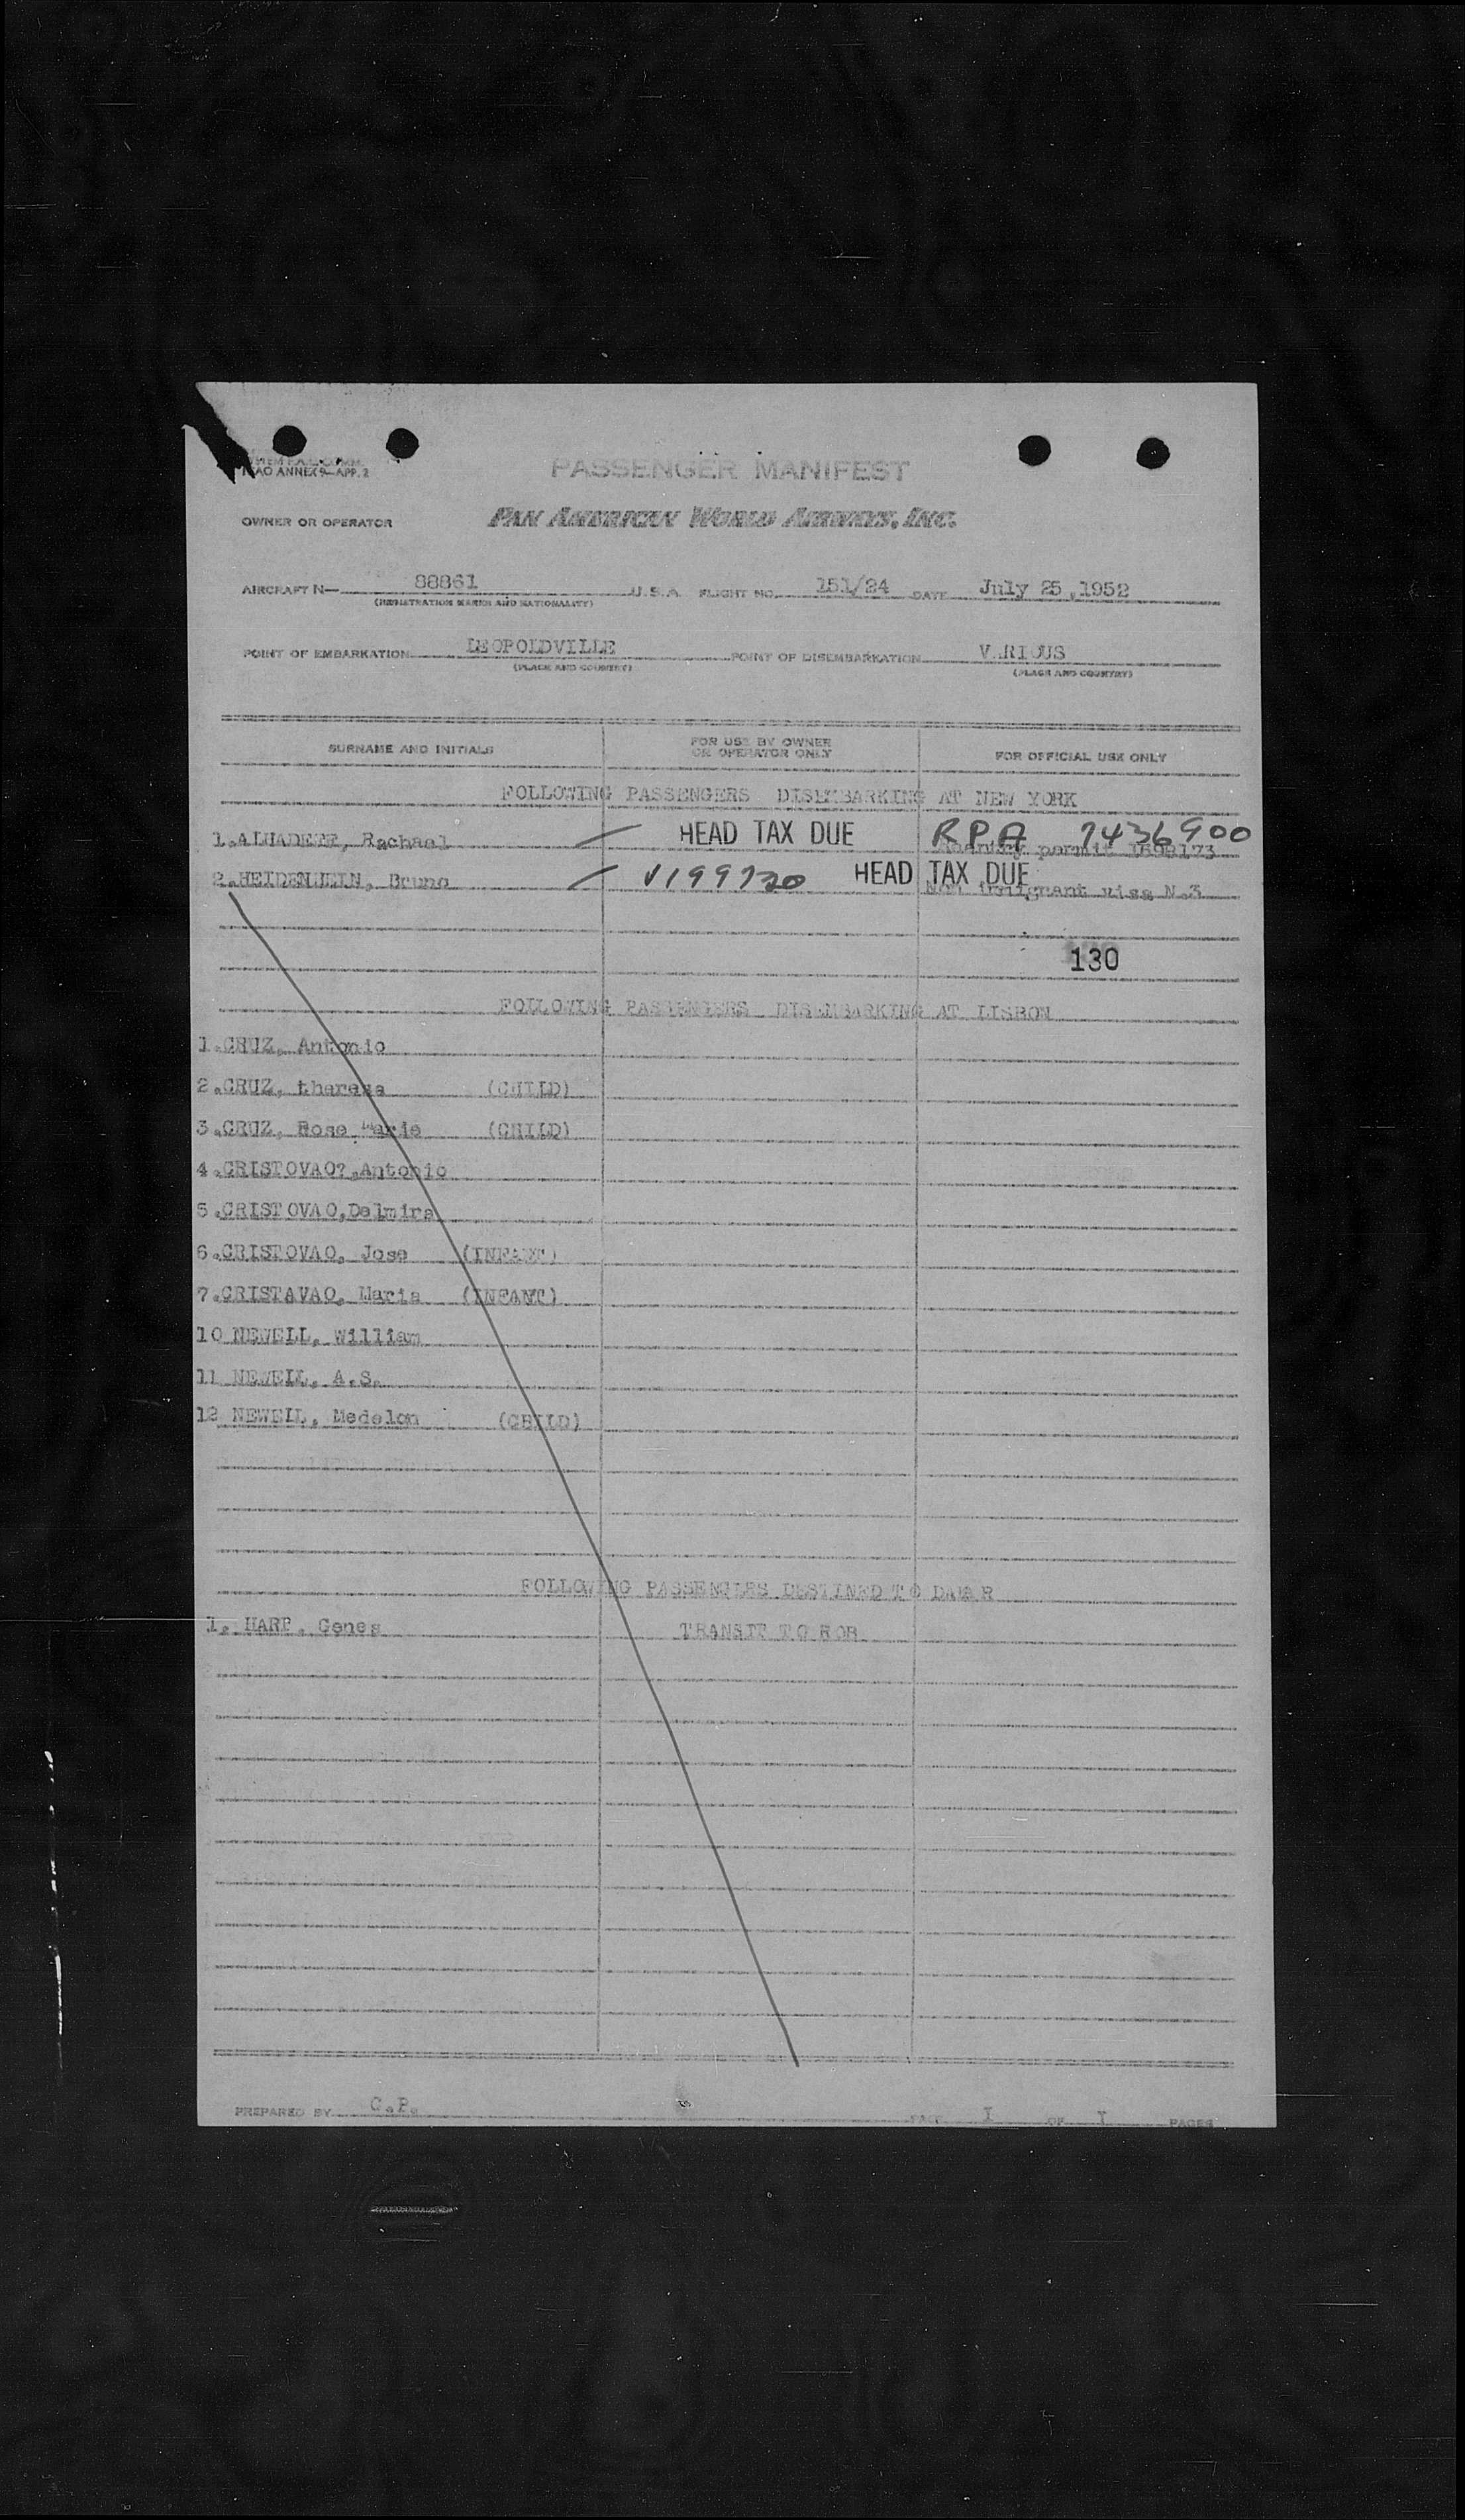 ICAO ANNEX 9—APP. 2
PASSENGER MANIFEST
OWNER OR OPERATOR PAN AMERICAN WORLD AIRWAYS, INC.
AIRCRAFT N— 88861 U.S.A. FLIGHT NO. 151/24 DATE July 25, 1952
(REGISTRATION MARKS AND NATIONALITY)
POINT OF EMBARKATION LEOPOLDVILLE POINT OF DISEMBARKATION V.RIOUS
(PLACE AND COUNTRY) (PLACE AND COUNTRY)
SURNAME AND INITIALS FOR USE BY OWNER OR OPERATOR ONLY FOR OFFICIAL USE ONLY
FOLLOWING PASSENGERS DISEMBARKING AT NEW YORK
1.ALHADEFF, Rachael HEAD TAX DUE RPA 7436900
permit 1898173
2. Bruno V199720 HEAD TAX DUE
immigrant visa N.3
130
FOLLOWING PASSENGERS DISEMBARKING AT LISBON
1.CRUZ, Antonio
2.CRUZ, theresa (CHILD)
3.CRUZ, Rose Marie (CHILD)
4.CRISTOVAO?,Antonio
5.CRISTOVAO,Delmira
6.CRISTOVAO, Jose (INFANT)
7.CRISTAVAO, Maria (INFANT)
10 NEWELL, William
11 NEWELL, A.S.
12 NEWELL, Medelon (CHILD)
FOLLOWING PASSENGERS DESTINED TO DAKAR
1. HARP, Genes TRANSIT TO ROB
PREPARED BY C.P. PAGE I OF I PAGES